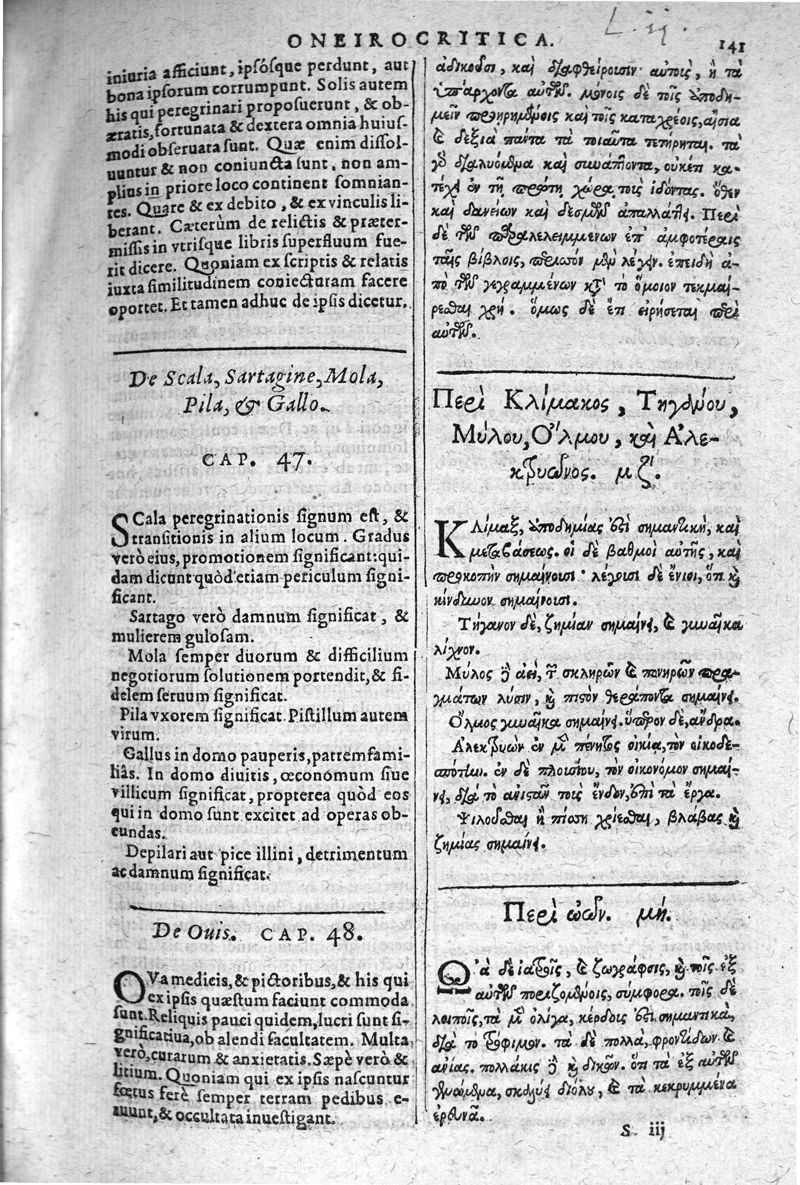 L. ij.
ONEIROCRITICA.
141
iniuria afficiunt, ipsósque perdunt, aut
bona ipsorum corrumpunt. Solis autem
his qui peregrinari proposuerunt, & ob-
æratis, fortunata & dextera omnia huius-
modi obseruata sunt. Quæ enim dissol-
uuntur & non coniuncta sunt, non am-
plius in priore loco continent somnian-
tes. Quare & ex debito, & ex vinculis li-
berant. Cæterùm de relictis & præter-
missis in vtrisque libris superfluum fue-
rit dicere. Quoniam ex scriptis & relatis
iuxta similitudinem coniecturam facere
oportet. Et tamen adhuc de ipsis dicetur.
De Scala, Sartagine, Mola,
Pila, & Gallo.
CAP. 47.
SCala peregrinationis signum est, &
transitionis in alium locum. Gradus
verò eius, promotionem significant: qui-
dam dicunt quòd etiam periculum signi-
ficant.
Sartago verò damnum significat, &
mulierem gulosam.
Mola semper duorum & difficilium
negotiorum solutionem portendit, & fi-
delem seruum significat.
Pila vxorem significat. Pistillum autem
virum.
Gallus in domo pauperis, patremfami-
liâs. In domo diuitis, œconomum siue
villicum significat, propterea quòd eos
qui in domo sunt excitet ad operas ob-
eundas.
Depilari aut pice illini, detrimentum
ac damnum significat.
De Ouis. CAP. 48.
OVa medicis, & pictoribus, & his qui
ex ipsis quæstum faciunt commoda
sunt. Reliquis pauci quidem, lucri sunt si-
gnificatiua, ob alendi facultatem. Multa
verò, curarum & anxietatis. Sæpè verò &
litium. Quoniam qui ex ipsis nascuntur
fœtus ferè semper terram pedibus e-
ruunt, & occultata inuestigant.
ἀδικοῦσι, καὶ διαφθείρουσιν αὐτοὺς, ἢ τὰ
ὑπάρχοντα αὐτῶν. μόνοις δὲ τοῖς ἀποδη-
μεῖν προῃρημένοις καὶ τοῖς καταχρέοις, αἴσια
καὶ δεξιὰ πάντα τὰ τοιαῦτα τετήρηται. τὰ
γὰ διαλυόμενα καὶ συνάπτοντα, οὐκέτι κα-
τέχει ἐν τῇ πρώτῃ χώρᾳ τοὺς ἰδόντας. ὅθεν
καὶ δανείων καὶ δεσμῶν ἀπαλλάττει. Περὶ
δὲ τῶν παραλελειμμένων ἐπ' ἀμφοτέραις
ταῖς βίβλοις, περισσὸν μὲν λέγειν. ἐπειδὴ ἀ-
πὸ τῶν γεγραμμένων κατὰ τὸ ὅμοιον τεκμαί-
ρεσθαι χρή. ὅμως δὲ ἔτι εἰρήσεται περὶ
αὐτῶν.
Περὶ Κλίμακος, Τηγάνου,
Μύλου, Ὅλμου, καὶ Ἀλε-
κτρυῶνος. μζ΄.
ΚΛίμαξ, ἀποδημίας ἐστὶ σημαντικὴ, καὶ
μεταβάσεως. οἱ δὲ βαθμοὶ αὐτῆς, καὶ
προκοπὴν σημαίνουσι. λέγουσι δὲ ἔνιοι, ὅτι καὶ
κίνδυνον σημαίνουσι.
Τήγανον δὲ, ζημίαν σημαίνει, καὶ γυναῖκα
λίχνον.
Μύλος δὲ ἀεὶ, τῶν σκληρῶν καὶ πονηρῶν πρα-
γμάτων λύσιν, καὶ πιστὸν θεράποντα σημαίνει.
Ὅλμος γυναῖκα σημαίνει. ὕπερον δὲ, ἄνδρα.
Ἀλεκτρυὼν ἐν μὲν πένητος οἰκίᾳ, τὸν οἰκοδε-
σπότην. ἐν δὲ πλουσίου, τὸν οἰκονόμον σημαί-
νει, διὰ τὸ ἀνιστᾶν τοὺς ἔνδον, ἐπὶ τὰ ἔργα.
Ψιλοῦσθαι ἢ πίσσῃ χρίεσθαι, βλάβας καὶ
ζημίας σημαίνει.
Περὶ ὠῶν. μη΄.
ΩΑ δὲ ἰατροῖς, καὶ ζωγράφοις, καὶ τοῖς ἐξ
αὐτῶν ποριζομένοις, σύμφορα. τοῖς δὲ
λοιποῖς, τὰ μὲν ὀλίγα, κέρδοις ἐστὶ σημαντικὰ,
διὰ τὸ τρόφιμον. τὰ δὲ πολλὰ, φροντίδων καὶ
ἀνίας. πολλάκις δὲ καὶ δικῶν. ὅτι τὰ ἐξ αὐτῶν
γενόμενα, σκαλεύει διόλου, καὶ τὰ κεκρυμμένα
ἐρευνᾷ.
S iij